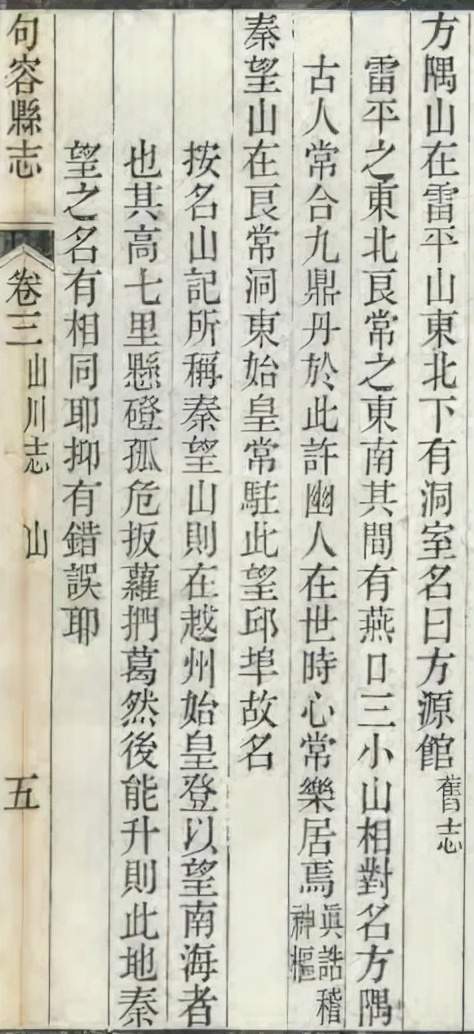 方隅山在雷平山東北下有洞室名曰方源館舊志
雷平之東北良常之東南其間有燕口三小山相對名方隅
古人常合九鼎丹於此許幽人在世時心常樂居焉眞誥稽神樞
秦望山在良常洞東始皇常駐此望邱埠故名
按名山記所稱秦望山則在越州始皇登以望南海者
也其高七里懸磴孤危扳蘿捫葛然後能升則此地秦
望之名有相同耶抑有錯誤耶
句容縣志 卷三 山川志 山 五